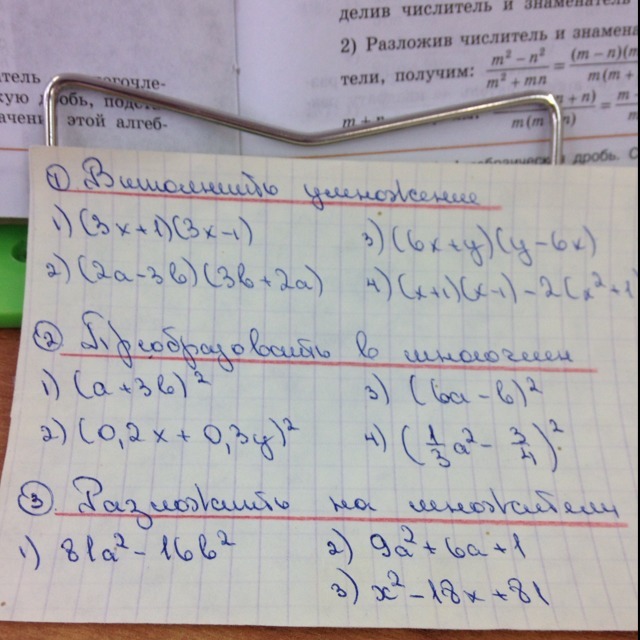 делив числитель и знаменатель
2) Разложив числитель и знамена
тели, получим: (m² − n²)/(m² + mn) = (m − n)(m
m(m +
кую дробь, подст
этой алгеб-
дробь.
① Выполнить умножение
1) (3x+1)(3x-1)
3) (6x+y)(y-6x)
2) (2a-3b)(3b+2a)
4) (x+1)(x-1)-2(x²+1
② Преобразовать в многочлен
1) (a+3b)²
3) (6a-b)²
2) (0,2x+0,3y)²
4) (1/3 a² - 3/4)²
③ Разложить на множители
1) 81a²-16b²
2) 9a²+6a+1
3) x²-18x+81